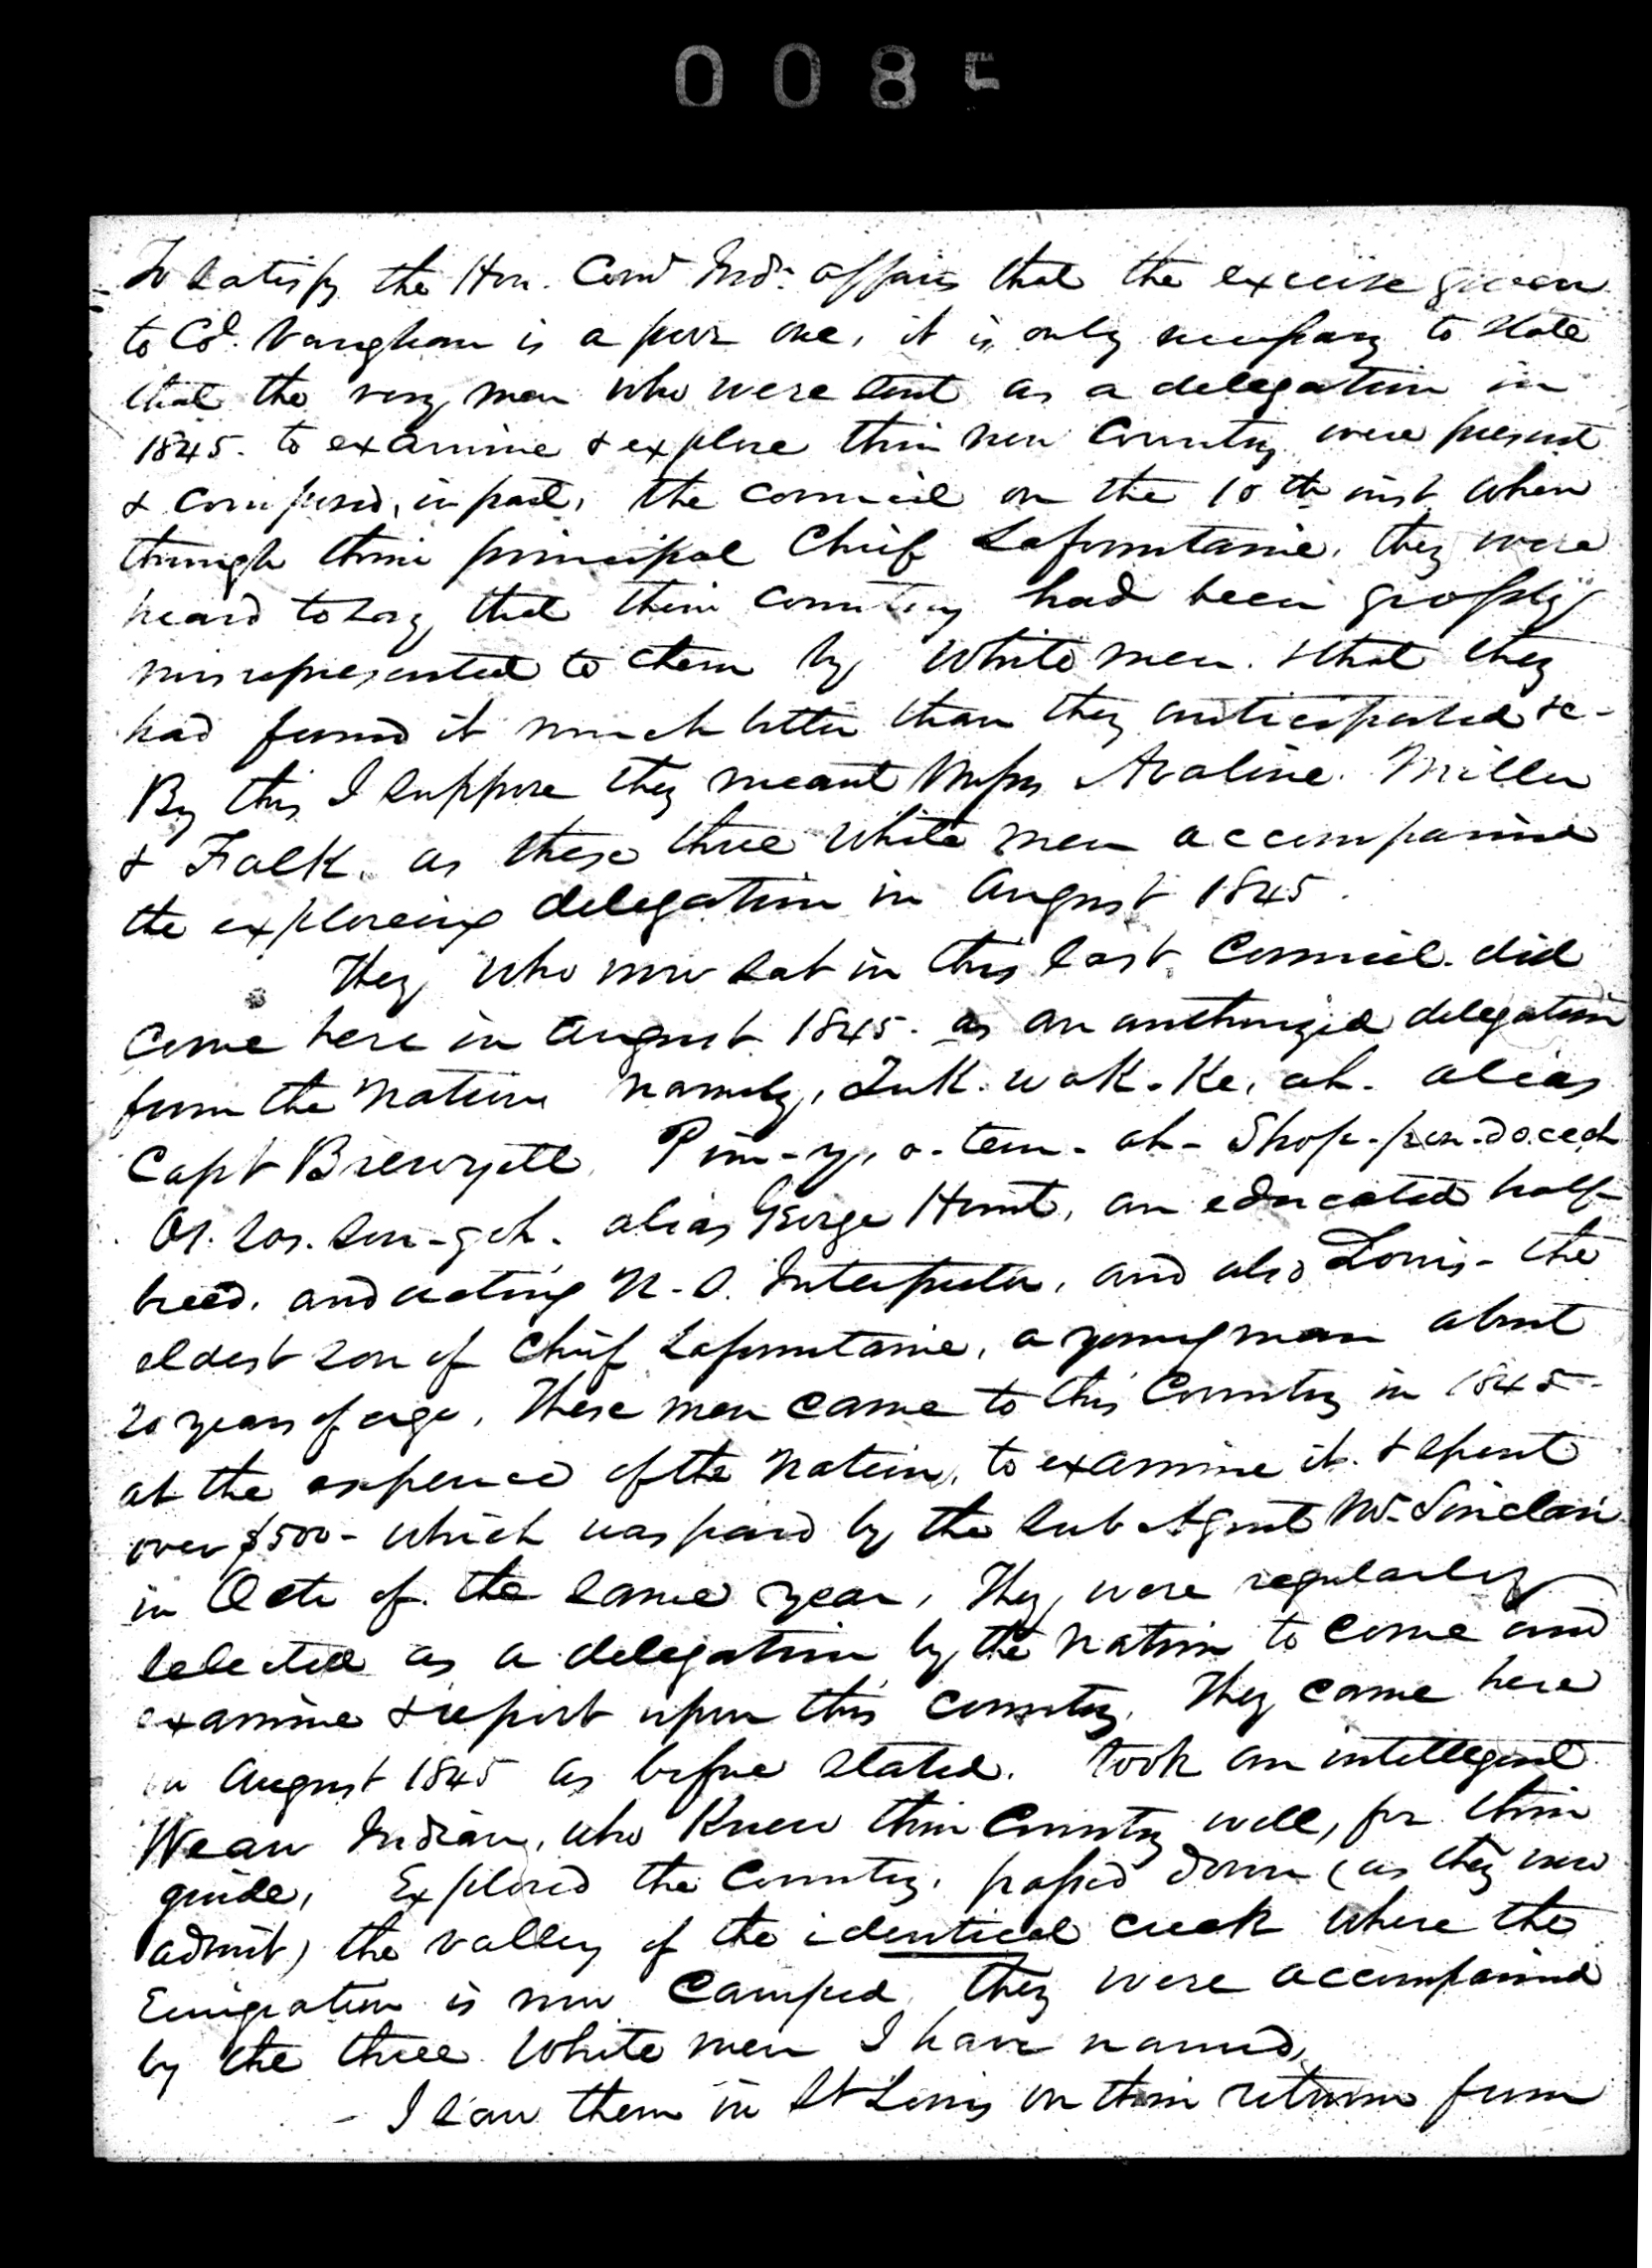 0085
To satisfy the Hon. Comr Indn affairs that the excuse given
to Col. Vaughan is a poor one, it is only necessary to state
that the very men who were sent as a delegation in
1845. to examine & explore their new Country were present
& composed, in part, the council on the 10th inst when
through their principal Chief Lafountaine, they were
heard to say that their country had been grossly
misrepresented to them by white men. & that they
had found it much better than they anticipated &c-
By this I suppose they meant Messrs Avaline. Miller
& Falk. as these three white men accompanied
the exploreing delegation in August 1845.
They who now sat in this last Council. did
come here in August 1845. as an authorized delegation
from the Nation namely, Luk. wak. Ke. ah. alias
Capt Brewyette, Pim-y, o-tem-ah- Shop-pen-do.ceah
Oz. zos. sun-gah. alias George Hunt, an educated half-
breed. and acting U.S. Interpreter, and also Louis- the
eldest son of Chief Lafountaine, a young man about
20 years of age. These men came to this Country in 1845-
at the expence of the Nation, to examine it. & spent
over $500- which was paid by the Sub Agent Mr. Sinclair
in Octr of the same year, They were regularly
selected as a delegation by the Nation to come and
examine & report upon this country. They came here
in August 1845 as before stated. took an intelligent
Wean Indian, who Knew their Country well, for their
guide, Explored the Country, passed down (as they now
admit) the valley of the identical creek where the
Emigration is now Camped. they were accompanied
by the three White men I have named,
- I saw them in St Louis on their return from